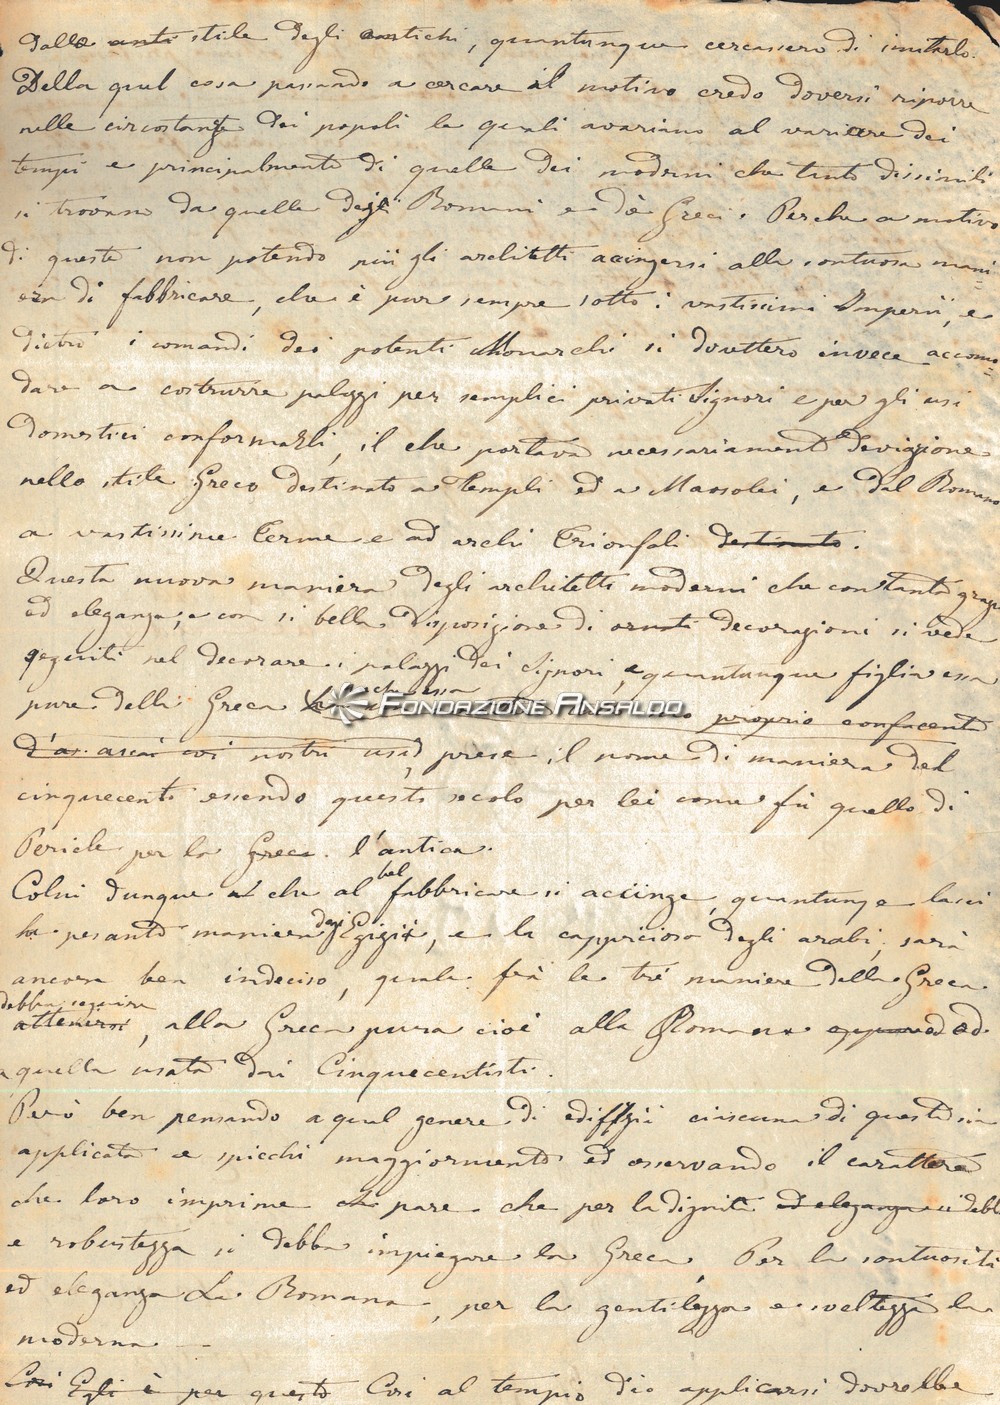 dallo anti stile degli antichi, quantunque cercassero di imitarlo.
Della qual cosa passando a cercare il motivo credo doversi riporre
nelle circostanze dei popoli le quali avariano al variare dei
tempi e principalmente di quelle dei moderni che tanto dissimili
si trovano da quelle degli Romani e dè Greci. Perche a motivo
di queste non potendo più gli architetti accingersi alla sontuosa mani
era di fabbricare, che è pur sempre sotto i vastissimi Imperii, e
dietro i comandi dei potenti Monarchi si dovettero invece accomo
dare a costrurre palazzi per semplici privati Signori e per gli usi
domestici conformarli, il che portava necessariamente deviazione
nello stile Greco destinato a Templi ed a Mausolei, e dal Romano
a vastissime Terme e ad archi Trionfali destinato.
Questa nuova maniera degli architetti moderni che con tanta grazia
ed eleganza, e con si bella disposizione di ornati decorazioni si vede
seguiti nel decorare i palazzi dei Signori, e quantunque figlia essa
che essa
pure della Greca proprio confacente
FONDAZIONE ANSALDO
d'as. assai coi nostri usi, prese il nome di maniera del
cinquecento essendo questo secolo per lei come fù quello di
Pericle per la Greca. l'antica.
bel
Colui dunque che al fabbricare si accinge, quantunque lasci
degi
la pesante maniera Egizii, e la cappriciosa degli arabi, sarà
ancora ben indeciso, quale frà le trè maniere della Greca
debba seguire
attenersi, alla Greca pura cioè alla Romana oppure ad ed
a quella usata dai Cinquecentisti.
Però ben pensando a qual genere di edifizii ciascuna di queste sia
applicata e spicchi maggiormente ed osservando il carattere
che loro imprime pare che per la dignità ed eleganza si debb
e robustezza si debba impiegare la Greca, Per la sontuosità
ed eleganza La Romana, per la gentilezza e sveltezza la
moderna.
Così Egli è per questo Così al tempio dio applicarsi dovrebbe